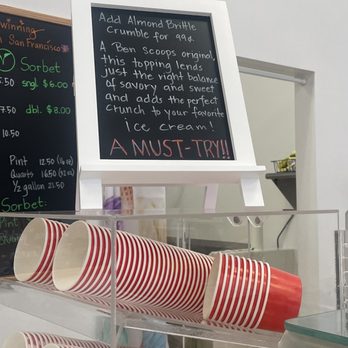 winning
San Francisco
Sorbet
5.50 sngl $6.00
7.50 dbl. $8.00
10.50
Pint 12.50 (16 oz)
Quarts 16.50 (32 oz)
½ gallon 21.50
Sorbet:
Pint
Add Almond Brittle
Crumble for 99¢
A Ben scoops original,
this topping lends
just the right balance
of savory and sweet
and adds the perfect
crunch to your favorite
Ice cream!
A MUST-TRY!!